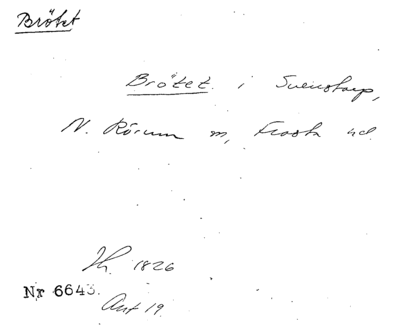 Brötet
Brötet i Svenstorp,
N. Rörum sn, Frosta hd.
Lh. 1826
Nr 6643.
Akt 19